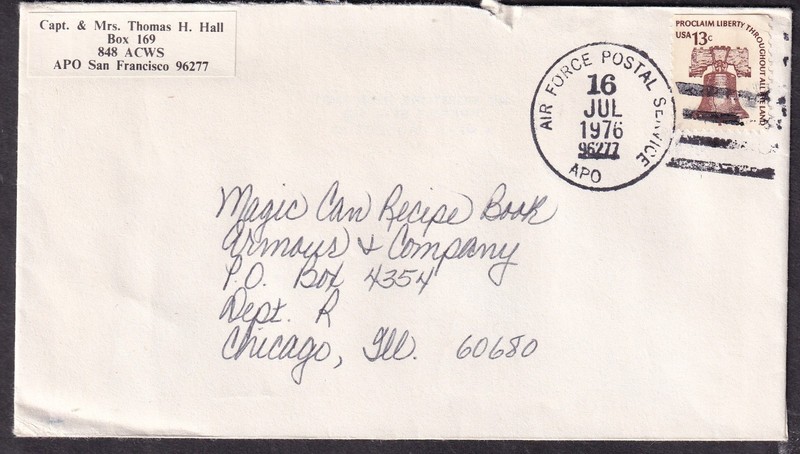 Capt. & Mrs. Thomas H. Hall
Box 169
848 ACWS
APO San Francisco 96277
PROCLAIM LIBERTY THROUGHOUT ALL THE LAND
USA 13c
AIR FORCE POSTAL SERVICE
16
JUL
1976
96277
APO
Magic Can Recipe Book
Armour & Company
P.O. Box 4354
Dept. R
Chicago, Ill. 60680